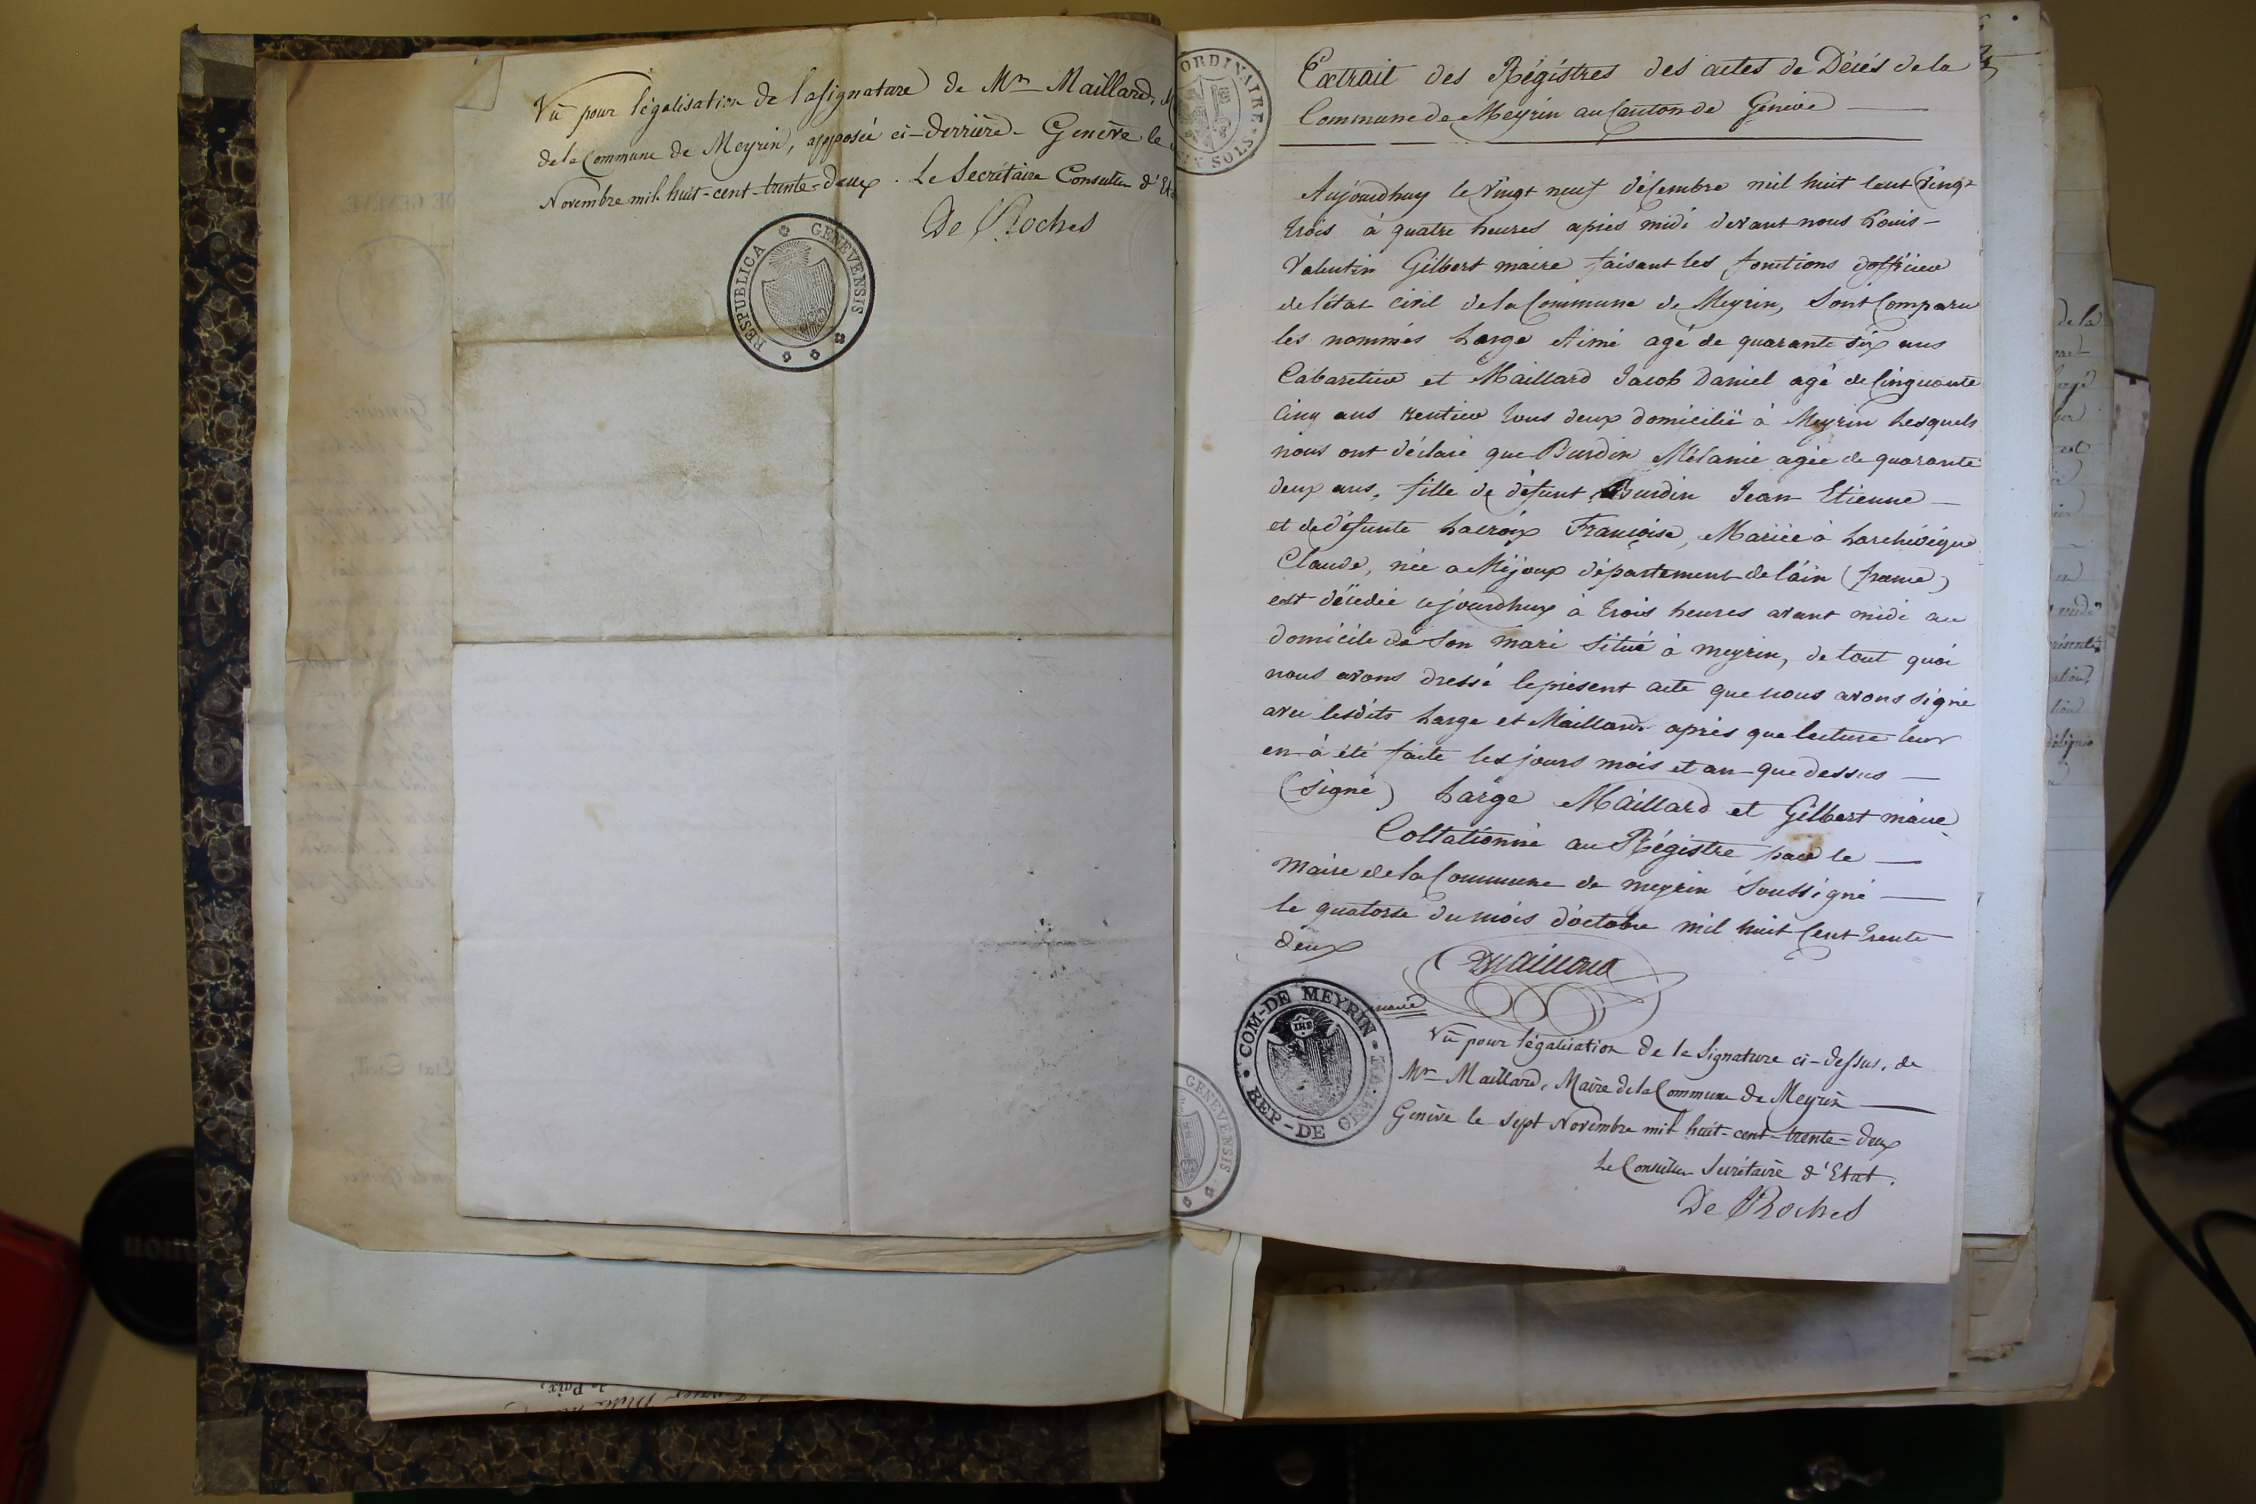 Vû pour légalisation de la signature de Mr Maillard,
de la Commune de Meyrin, apposée ci-derrière. Genève le
Novembre mil-huit-cent-trente-deux. Le Secrétaire Conseiller d'Eta
De Roches
RESPUBLICA GENEVENSIS
ORDINAIRE
SIX SOLS
Extrait des Régistres des actes de Décés de la
Commune de Meyrin au Canton de Genève
Aujourdhuy le Vingt neuf décembre mil huit Cent Vingt
trois à quatre heures après midi devant nous Louis
Valentin Gilbert maire faisant les fonctions d'officier
de l'état civil de la Commune de Meyrin, Sont Comparu
les nommés Large Aimé agé de quarante six ans
Cabaretier et Maillard Jacob Daniel agé de Cinquante
Cinq ans rentier tous deux domicilié à Meyrin Lesquels
nous ont déclaré que Burdin Mélanie agée de quarante
deux ans, fille de défunt Burdin Jean Etienne
et de défunte Lacroix Françoise, Mariée à Larchévêque
Claude, née a Mijoux département de l'ain (france)
est décédée cejourdhuy à trois heures avant midi au
domicile de Son mari situé à meyrin, de tout quoi
nous avons dressé le présent acte que nous avons signé
avec lesdits Large et Maillard après que lecture leur
en à été faite les jours mois et an que dessus
(Signé) Large Maillard et Gilbert maire
Collationné au Régistre par le
Maire de la Commune de meyrin Soussigné
le quatorse du mois d'octobre mil huit Cent trente
deux
DMaillard
maire
COM-DE MEYRIN
REP-DE
Vû pour légalisation de la Signature ci-dessus, de
Mr Maillard, Maire de la Commune de Meyrin
Genève le sept Novembre mil-huit-cent-trente-deux
Le Conseiller Secrétaire d'Etat.
De Roches
GENEVENSIS